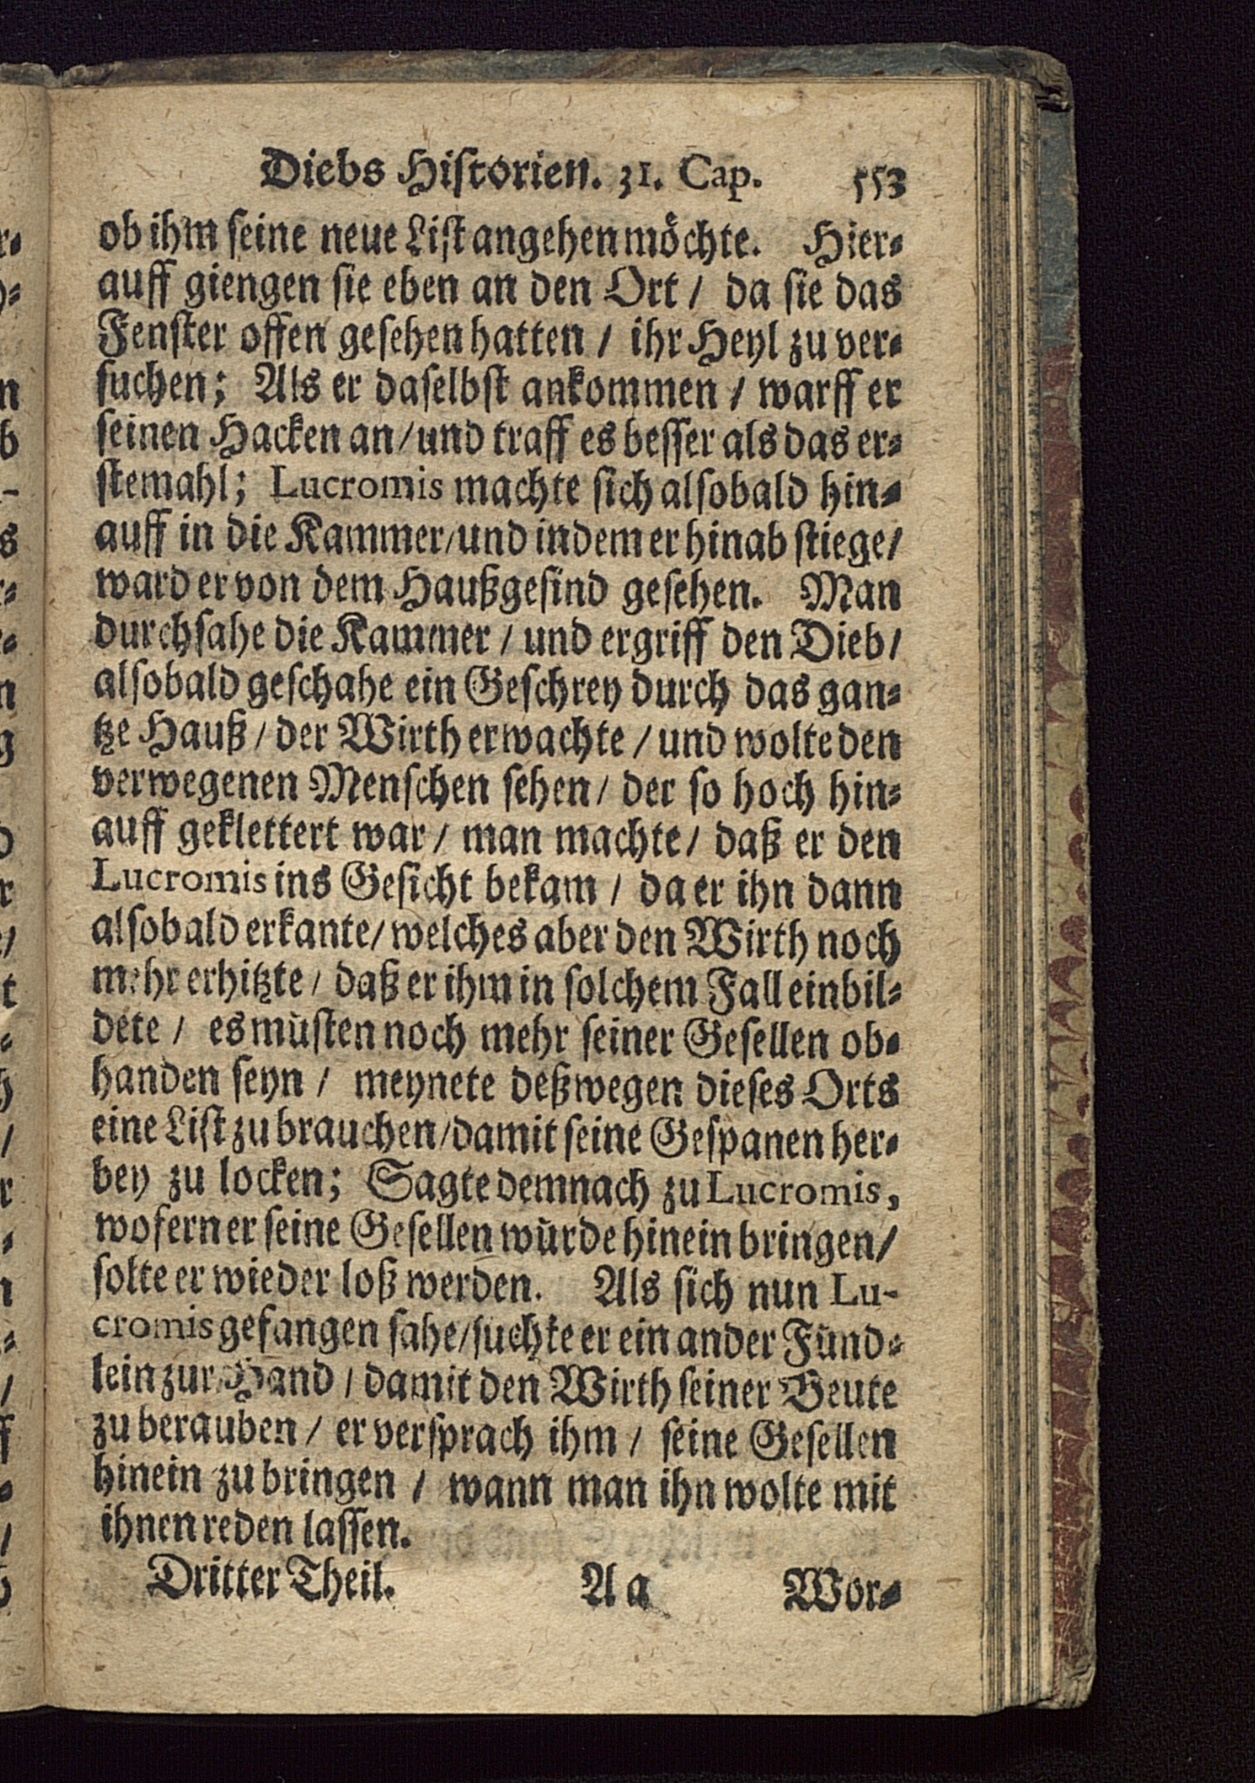 Diebs Historien. 31. Cap. 553
ob ihm seine neue List angehen möchte. Hier-
auff giengen sie eben an den Ort / da sie das
Fenster offen gesehen hatten / ihr Heyl zu ver-
suchen; Als er daselbst ankommen / warff er
seinen Hacken an / und traff es besser als das er-
stemahl; Lucromis machte sich alsobald hin-
auff in die Kammer / und indem er hinab stiege /
ward er von dem Haußgesind gesehen. Man
durchsahe die Kammer / und ergriff den Dieb /
alsobald geschahe ein Geschrey durch das gan-
tze Hauß / der Wirth erwachte / und wolte den
verwegenen Menschen sehen / der so hoch hin-
auff geklettert war / man machte / daß er den
Lucromis ins Gesicht bekam / da er ihn dann
alsobald erkante / welches aber den Wirth noch
mehr erhitzte / daß er ihm in solchem Fall einbil-
dete / es müsten noch mehr seiner Gesellen ob-
handen seyn / meynete deßwegen dieses Orts
eine List zu brauchen / damit seine Gespanen her-
bey zu locken; Sagte demnach zu Lucromis,
wofern er seine Gesellen würde hinein bringen /
solte er wieder loß werden. Als sich nun Lu-
cromis gefangen sahe / suchte er ein ander Fünd-
lein zur Hand / damit den Wirth seiner Beute
zu berauben / er versprach ihm / seine Gesellen
hinein zu bringen / wann man ihn wolte mit
ihnen reden lassen.
Dritter Theil. Aa Wor-